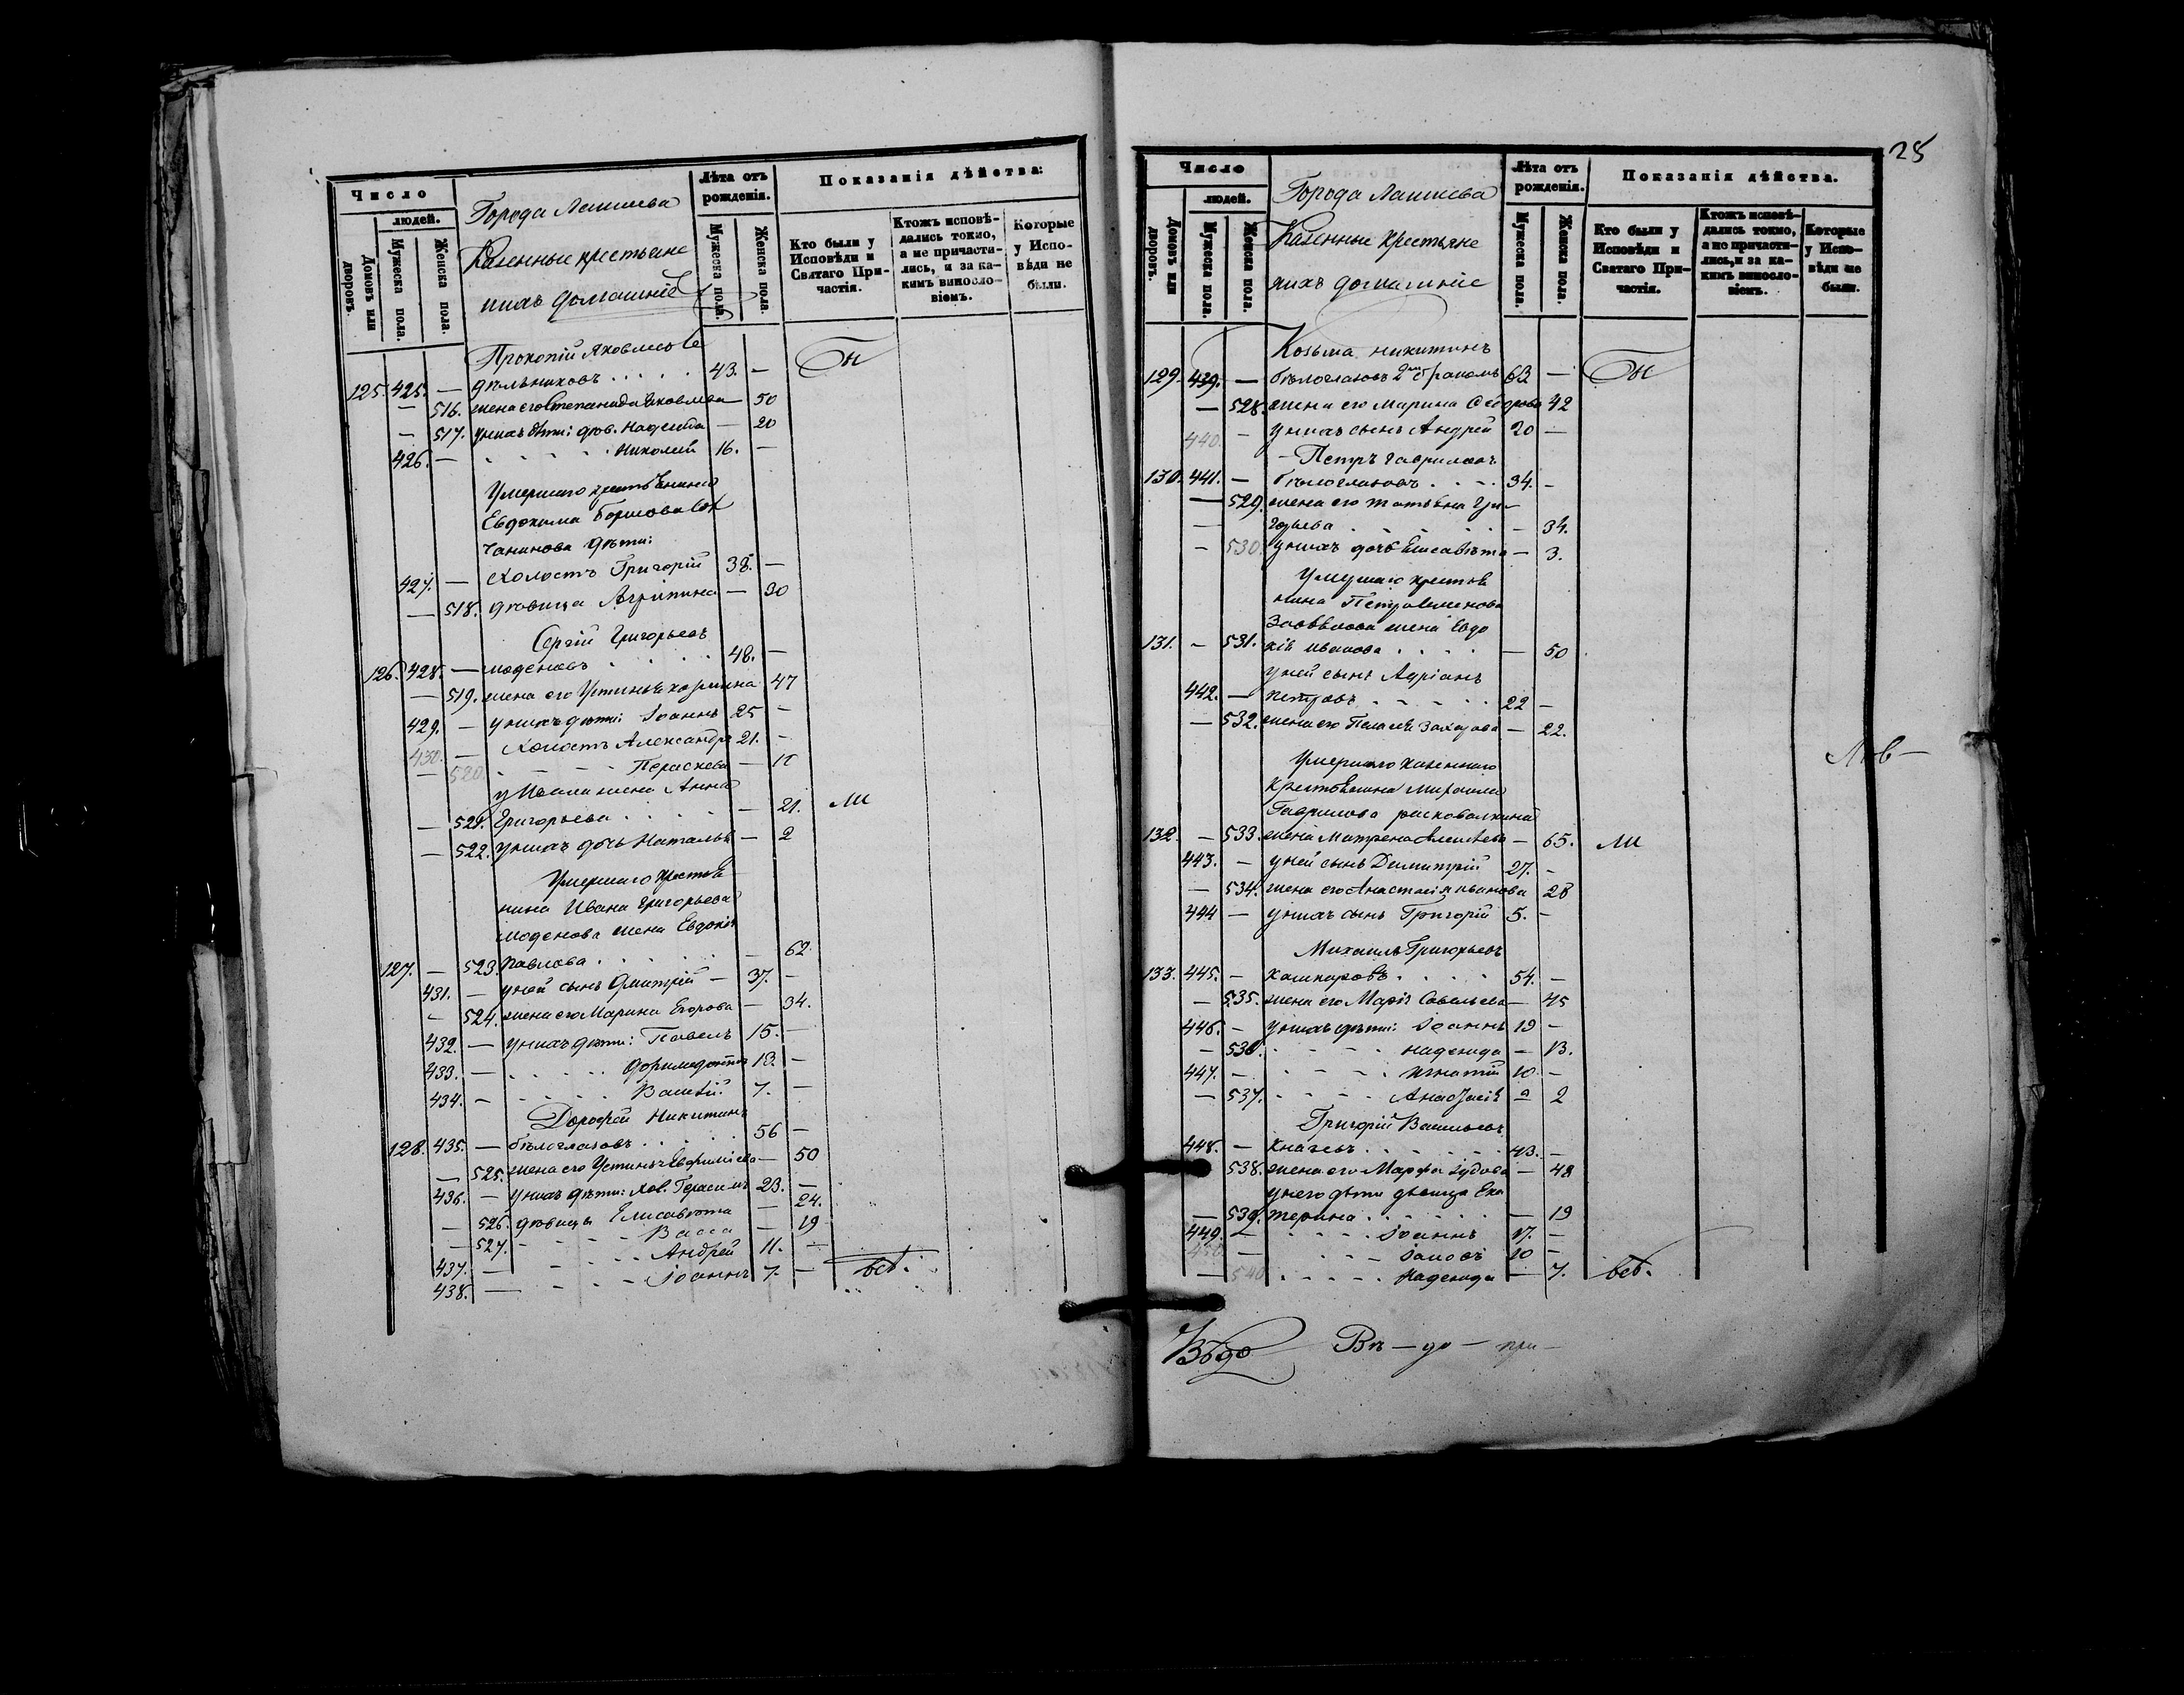 Число
людей.
Домовъ или дворовъ.
Мужеска пола.
Женска пола.
Города Лаишева
Казенные крестьяне
ихъ домашніе
Лѣта отъ рожденія.
Мужеска пола.
Женска пола.
Показанія дѣйства:
Кто были у Исповѣди и Святаго Причастія.
Ктожъ исповѣдались токмо, а не причастились, и за какимъ винословіемъ.
Которые у Исповѣди не были.
Прокопій Яковлевъ
125. 425. — дѣльниковъ . . . . 43. — Бы
— 516. жена его Степанида Яковлева — 50
— 517. у нихъ дѣти: дѣв. Надежда — 20
426. — . . . . Николай 16. —
Умершаго крестьянина
Евдокима Борисова
чанинова дѣти:
427. — холостъ Григорій 38. —
— 518. дѣвица Агрипина — 30
Сергій Григорьевъ
126. 428. — моденовъ . . . . 48. —
— 519. жена его Устинья 47
429. — у нихъ дѣти: Іоаннъ 25 —
430. — холостъ Александръ 21. —
— 520. . . . . Параскева —
у Іоанна жена Анна
— 521. Григорьева . . . . — 21. ли
— 522. у нихъ дочь Наталья — 2
Умершаго крестья
нина Ивана Григорьева
моденова жена Евдокія
127. — 523. Павлова . . . . — 62.
431. — у ней сынъ Дмитрій — 37. —
— 524. жена его Марина Егорова — 34.
432. — у нихъ дѣти: Павелъ 15. —
433. — . . . . Доримедонтъ 13. —
434. — . . . . Василій 7. —
Дорофей Никитинъ
128. 435. — бѣлоглазовъ . . . . 56 —
— 525. жена его Устинья Евфиміева — 50
436. — у нихъ дѣти: хол. Герасимъ 23. —
— 526. дѣвицы Елисавета — 24.
— 527. - - - - Васса — 19
437. — - - - - Андрей 11. —
438. — - - - Іоаннъ 7. — всѣ.
25
Число
людей.
Домовъ или дворовъ.
Мужеска пола.
Женска пола.
Города Лаишева
Казенные крестьяне
ихъ домашніе
Лѣта отъ рожденія.
Мужеска пола.
Женска пола.
Показанія дѣйства.
Кто были у Исповѣди и Святаго Причастія.
Ктожъ исповѣдались токмо, а не причастились, и за какимъ винословіемъ.
Которые у Исповѣди не были.
Козьма никитинъ
129. 439. — бѣлоглазовъ 2мъ бракомъ 63 — Бы
— 528. жена его Марина Ѳедорова 42
440. — у нихъ сынъ Андрей 20 —
Петръ гавриловъ
130. 441. — бѣлоглазовъ . . . . 34. —
— 529. жена его татьяна Гри-
— горьева . . . . — 34.
— 530. у нихъ дочь Елисавѣта — 3.
Умершаго крестья
нина Петра
жена Евдо
131. — 531. кія иванова . . . . — 50
у ней сынъ Адріанъ
442. — петровъ . . . . 22 —
— 532. жена его Пелагея Захарова — 22.
Умершаго казеннаго
крестьянина Михаила
Гаврилова расковалкина
132. — 533. жена Матрена Алексѣева — 65. ли
443. — у ней сынъ Димитрій 27. —
— 534. жена его Анастасія иванова 28
444 — у нихъ сынъ Григорій 5. —
Михаилъ Григорьевъ
133. 445. — кашкаровъ . . . . 54. —
— 535. жена его Марія Савельева — 45
446. — у нихъ дѣти: Іоаннъ 19 —
— 536. - - - - надежда — 13.
447. — - - - - игнатій 10 —
— 537. - - - - Анастасія — 2
Григорій Васильевъ
448. — князевъ . . . . 43. —
538. жена его Марфа іудова — 48
у него дѣти дѣвица Ека
— 539. терина . . . . — 19
449. — . . . . Іоаннъ 17. —
450. — - - - Іаковъ 10 —
— 540 . . . . Надежда — 7. всѣ.